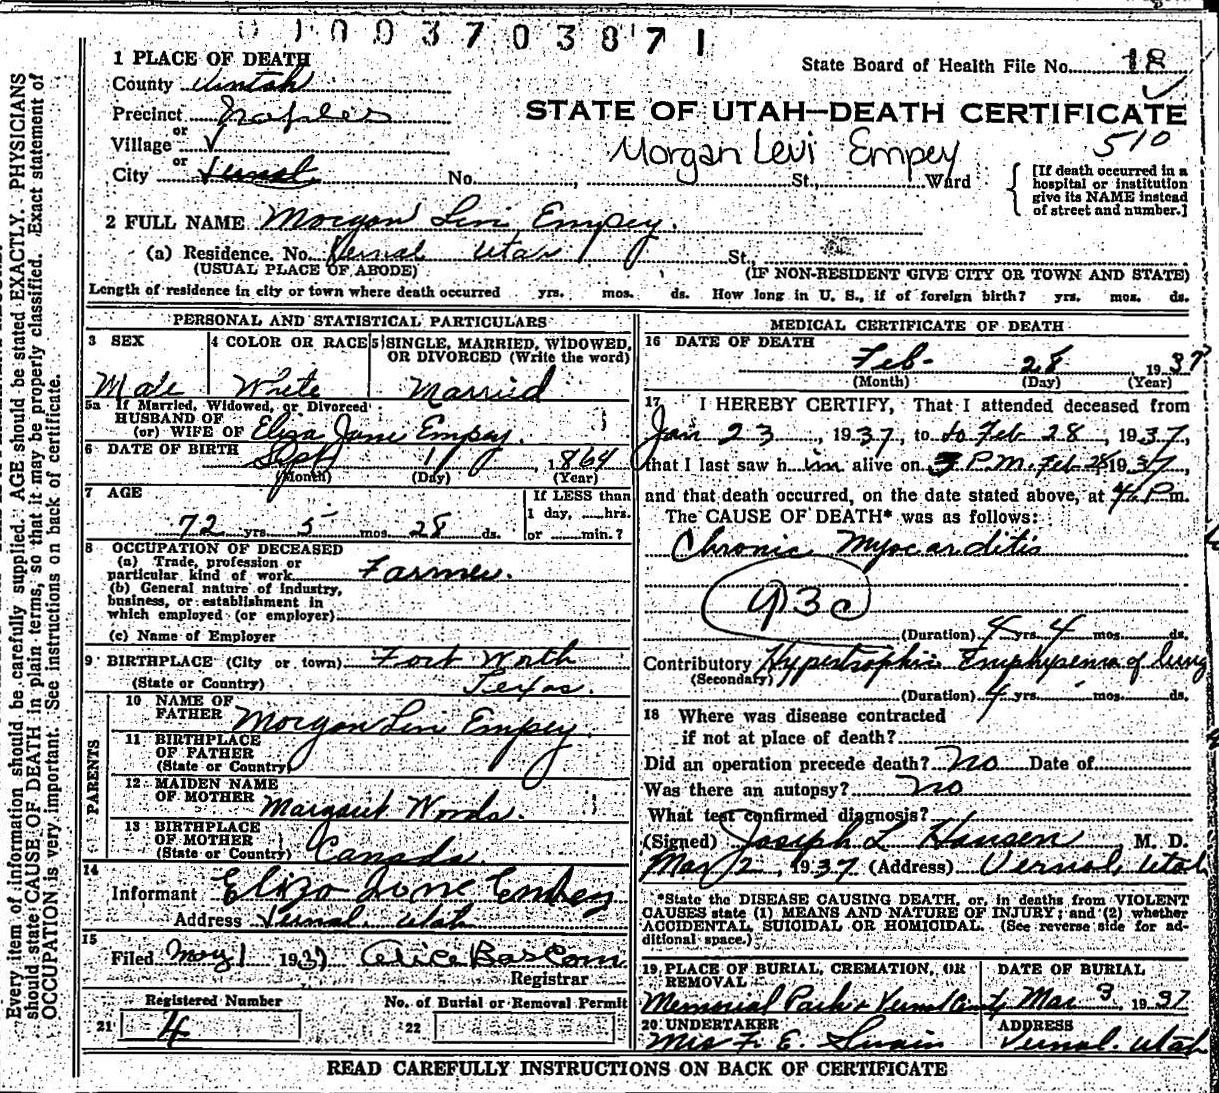 0100370387 1
1 PLACE OF DEATH
State Board of Health File No. 18
County Uintah
STATE OF UTAH—DEATH CERTIFICATE
Precinct Naples
510
or
Village V
Morgan Levi Empey
or
City Vernal No. , St., Ward
[If death occurred in a
hospital or institution
give its NAME instead
of street and number.]
2 FULL NAME Morgan Levi Empey.
(a) Residence. No. Vernal Utah St.,
(USUAL PLACE OF ABODE) (IF NON-RESIDENT GIVE CITY OR TOWN AND STATE)
Length of residence in city or town where death occurred yrs. mos. ds. How long in U. S., if of foreign birth? yrs. mos. ds.
PERSONAL AND STATISTICAL PARTICULARS
3 SEX
Male
4 COLOR OR RACE
White
5 SINGLE, MARRIED, WIDOWED,
OR DIVORCED (Write the word)
Married
5a If Married, Widowed, or Divorced
HUSBAND OF
(or) WIFE OF Eliza Jane Empey.
6 DATE OF BIRTH
Sept 1864
(Month) (Day) (Year)
7 AGE
72 yrs. 5 mos. 28 ds.
If LESS than
1 day, hrs.
or min.?
8 OCCUPATION OF DECEASED
(a) Trade, profession or
particular kind of work Farmer.
(b) General nature of industry,
business, or establishment in
which employed (or employer)
(c) Name of Employer
9 BIRTHPLACE (City or town) Fort Worth
(State or Country) Texas.
PARENTS
10 NAME OF
FATHER Morgan Levi Empey
11 BIRTHPLACE
OF FATHER
(State or Country)
12 MAIDEN NAME
OF MOTHER Margaret Woods.
13 BIRTHPLACE
OF MOTHER
(State or Country) Canada
14
Informant Eliza Jane Empey
Address Vernal, Utah
15
Filed May 1 1937 Alice Bascom
Registrar
Registered Number
21 4
No. of Burial or Removal Permit
22
MEDICAL CERTIFICATE OF DEATH
16 DATE OF DEATH
Feb- 28 1937
(Month) (Day) (Year)
17 I HEREBY CERTIFY, That I attended deceased from
Jan 23, 1937, to to Feb 28, 1937,
that I last saw him alive on 3 P.M. Feb 28 1937,
and that death occurred, on the date stated above, at 4 P.m.
The CAUSE OF DEATH* was as follows:
Chronic Myocarditis
93c
(Duration) 4 yrs. 4 mos. ds.
Contributory Hypertrophic Emphysema of lung
(Secondary)
(Duration) 4 yrs. mos. ds.
18 Where was disease contracted
if not at place of death?
Did an operation precede death? No Date of
Was there an autopsy? No
What test confirmed diagnosis?
(Signed) Joseph L Hansen M. D.
Mar 2, 1937 (Address) Vernal, Utah
*State the DISEASE CAUSING DEATH, or, in deaths from VIOLENT
CAUSES state (1) MEANS AND NATURE OF INJURY; and (2) whether
ACCIDENTAL, SUICIDAL OR HOMICIDAL. (See reverse side for ad-
ditional space.)
19 PLACE OF BURIAL, CREMATION, OR
REMOVAL
Memorial Park Vernal
DATE OF BURIAL
Mar 3 1937
20 UNDERTAKER
Mrs F. E. Swain
ADDRESS
Vernal. Utah
READ CAREFULLY INSTRUCTIONS ON BACK OF CERTIFICATE
Every item of information should be carefully supplied. AGE should be stated EXACTLY. PHYSICIANS
should state CAUSE OF DEATH in plain terms, so that it may be properly classified. Exact statement of
OCCUPATION is very important. See instructions on back of certificate.